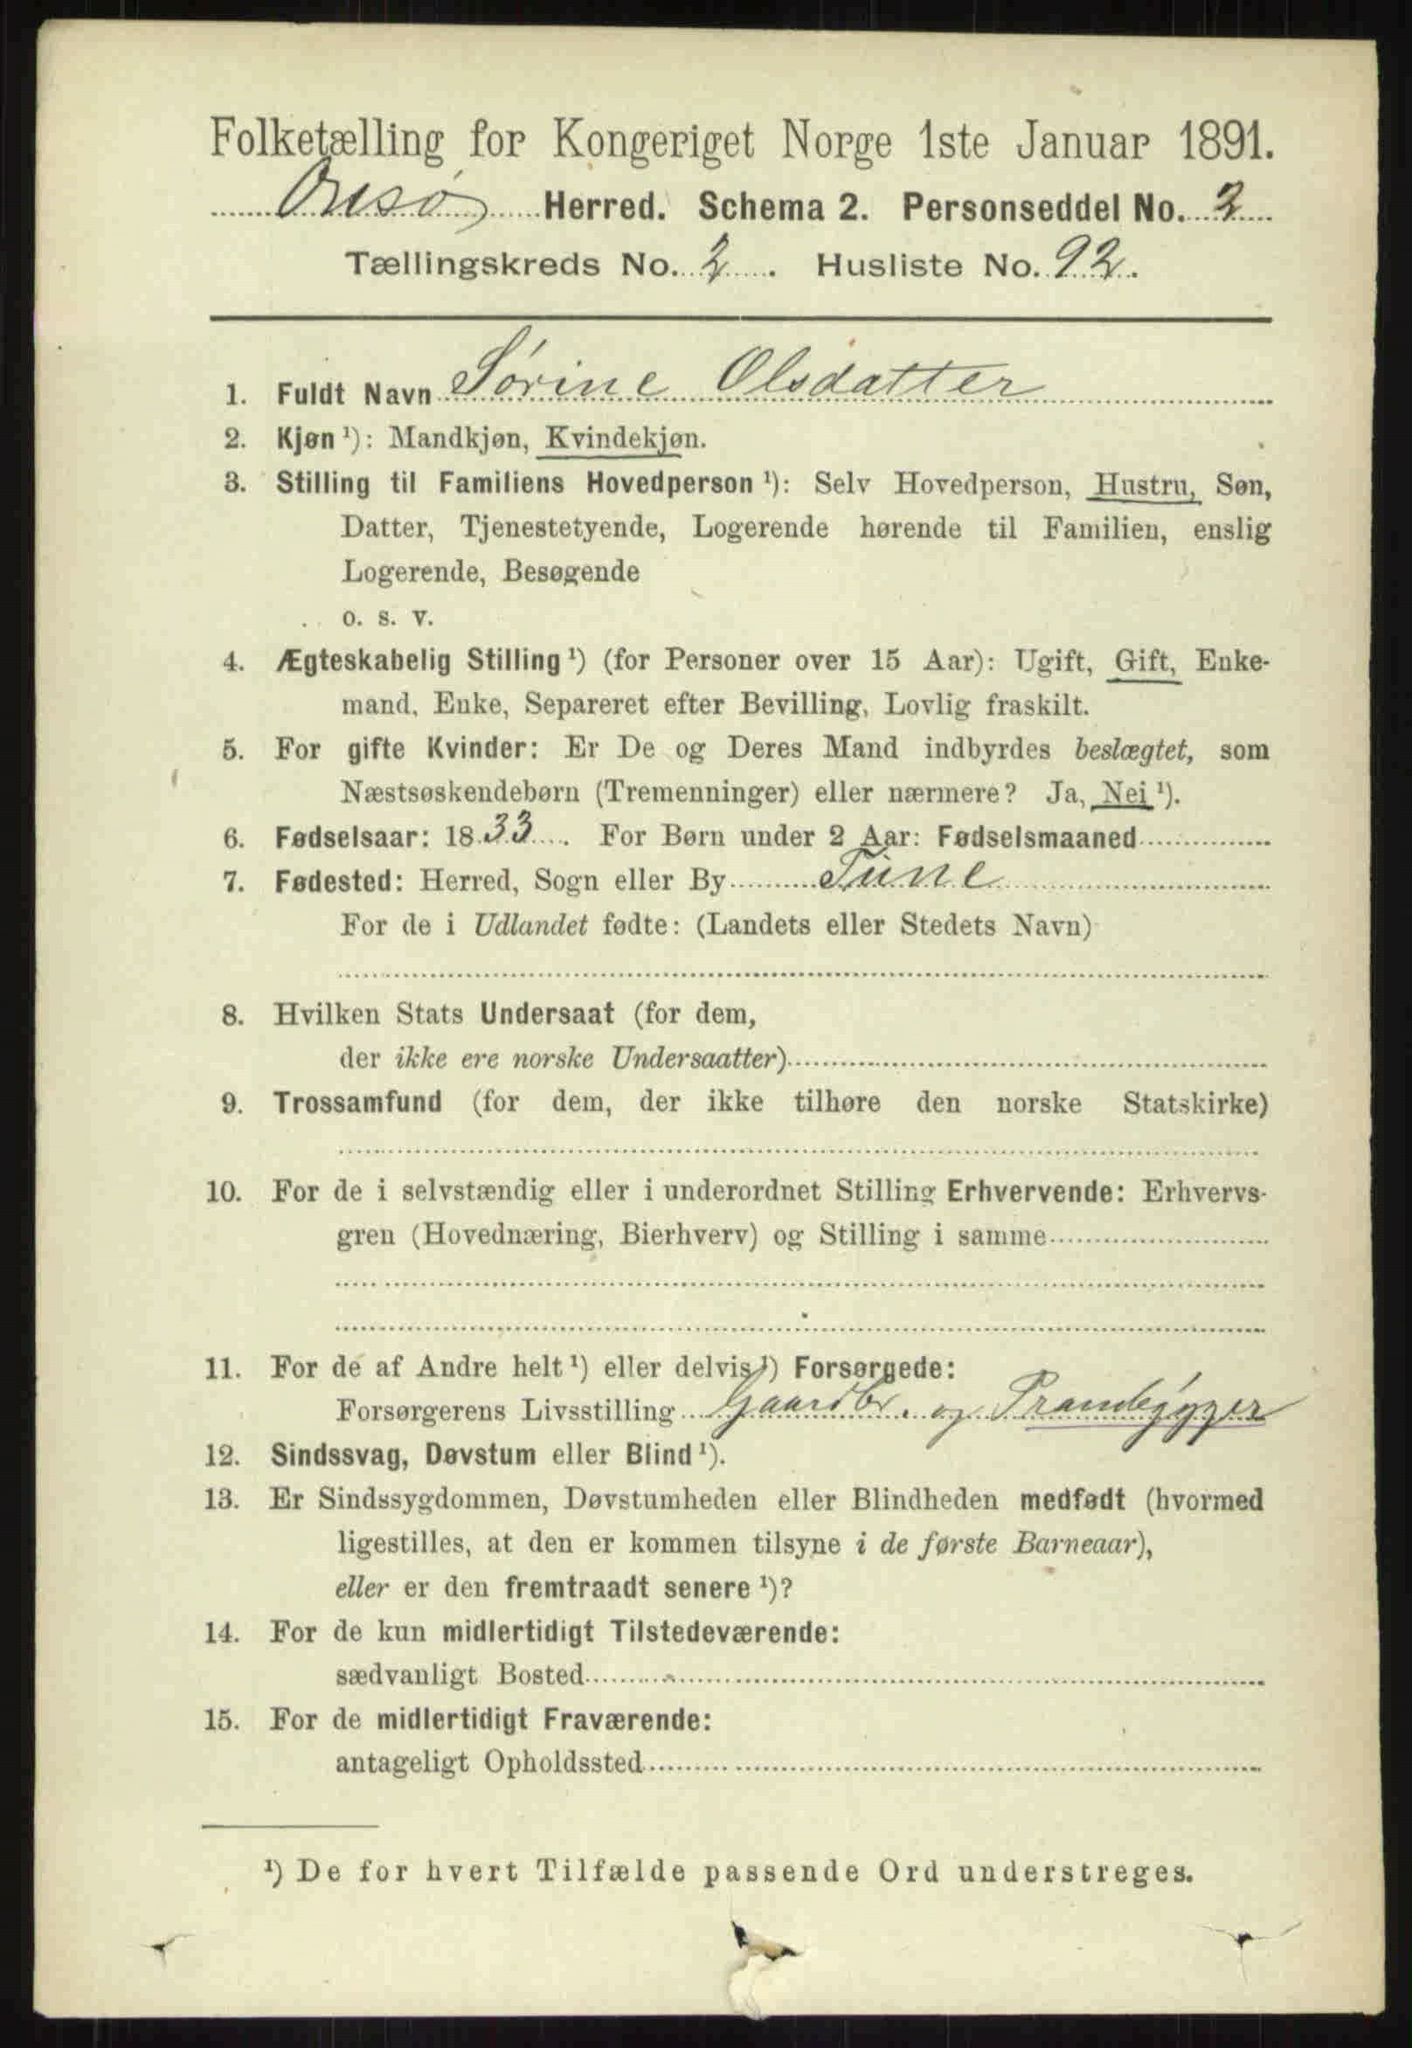 Folketælling for Kongeriget Norge 1ste Januar 1891.
Onsø Herred. Schema 2. Personseddel No. 2
Tællingskreds No. 2. Husliste No. 92.
1. Fuldt Navn Sørine Olsdatter
2. Kjøn ¹): Mandkjøn, Kvindekjøn.
3. Stilling til Familiens Hovedperson ¹): Selv Hovedperson, Hustru, Søn,
Datter, Tjenestetyende, Logerende hørende til Familien, enslig
Logerende, Besøgende
o. s. v.
4. Ægteskabelig Stilling ¹) (for Personer over 15 Aar): Ugift, Gift, Enke-
mand, Enke, Separeret efter Bevilling, Lovlig fraskilt.
5. For gifte Kvinder: Er De og Deres Mand indbyrdes beslægtet, som
Næstsøskendebørn (Tremenninger) eller nærmere? Ja, Nei ¹).
6. Fødselsaar: 1833. For Børn under 2 Aar: Fødselsmaaned
7. Fødested: Herred, Sogn eller By Tune
For de i Udlandet fødte: (Landets eller Stedets Navn)
8. Hvilken Stats Undersaat (for dem,
der ikke ere norske Undersaatter)
9. Trossamfund (for dem, der ikke tilhøre den norske Statskirke)
10. For de i selvstændig eller i underordnet Stilling Erhvervende: Erhvervs-
gren (Hovednæring, Bierhverv) og Stilling i samme
11. For de af Andre helt ¹) eller delvis ¹) Forsørgede:
Forsørgerens Livsstilling Gaardbr. og Prambygger
12. Sindssvag, Døvstum eller Blind ¹).
13. Er Sindssygdommen, Døvstumheden eller Blindheden medfødt (hvormed
ligestilles, at den er kommen tilsyne i de første Barneaar),
eller er den fremtraadt senere ¹)?
14. For de kun midlertidigt Tilstedeværende:
sædvanligt Bosted
15. For de midlertidigt Fraværende:
antageligt Opholdssted
¹) De for hvert Tilfælde passende Ord understreges.